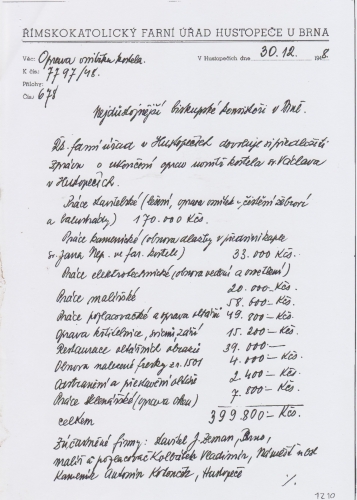 ŘÍMSKOKATOLICKÝ FARNÍ ÚŘAD HUSTOPEČE U BRNA
Věc: Oprava vnitřku kostela. V Hustopečích dne 30.12. 1948.
K čís: 7797/48.
Přílohy:
Čís: 678
Nejdůstojnější biskupské konsistoři v Brně.
farní úřad v Hustopečích dovoluje si předložiti
zprávu o ukončení oprav uvnitř kostela sv Václava
v Hustopečích.
Práce stavitelské (lešení, oprava omítek - čištění žeber a
a balustrády) 170.000 Kčs.
Práce kamenické (obnova dlažby v předsíni kaple
sv. Jana Nep. ve far. kostele) 33.000 Kčs.
Práce elektrotechnické (obnova vedení a osvětlení)
20.000 - Kčs.
Práce malířské 58.600 - Kčs.
Práce pozlacovačské a oprava oltářů 49.800 - Kčs.
Oprava křtitelnice, 15.200 - Kčs.
Restaurace oltářních obrazů 39.000 -
Obnova nalezené fresky z r. 1501 4.000 - Kčs.
Odstranění a přestavění oltářů 2.400 - Kčs.
Práce sklenářské (oprava oken) 7.800 - Kčs.
celkem 399.800 - Kčs.
Zúčastněné firmy: stavitel J. Zeman, Brno,
malíř a pozlacovač Vladimír,
Kameník Antonín Hustopeče
%
1210